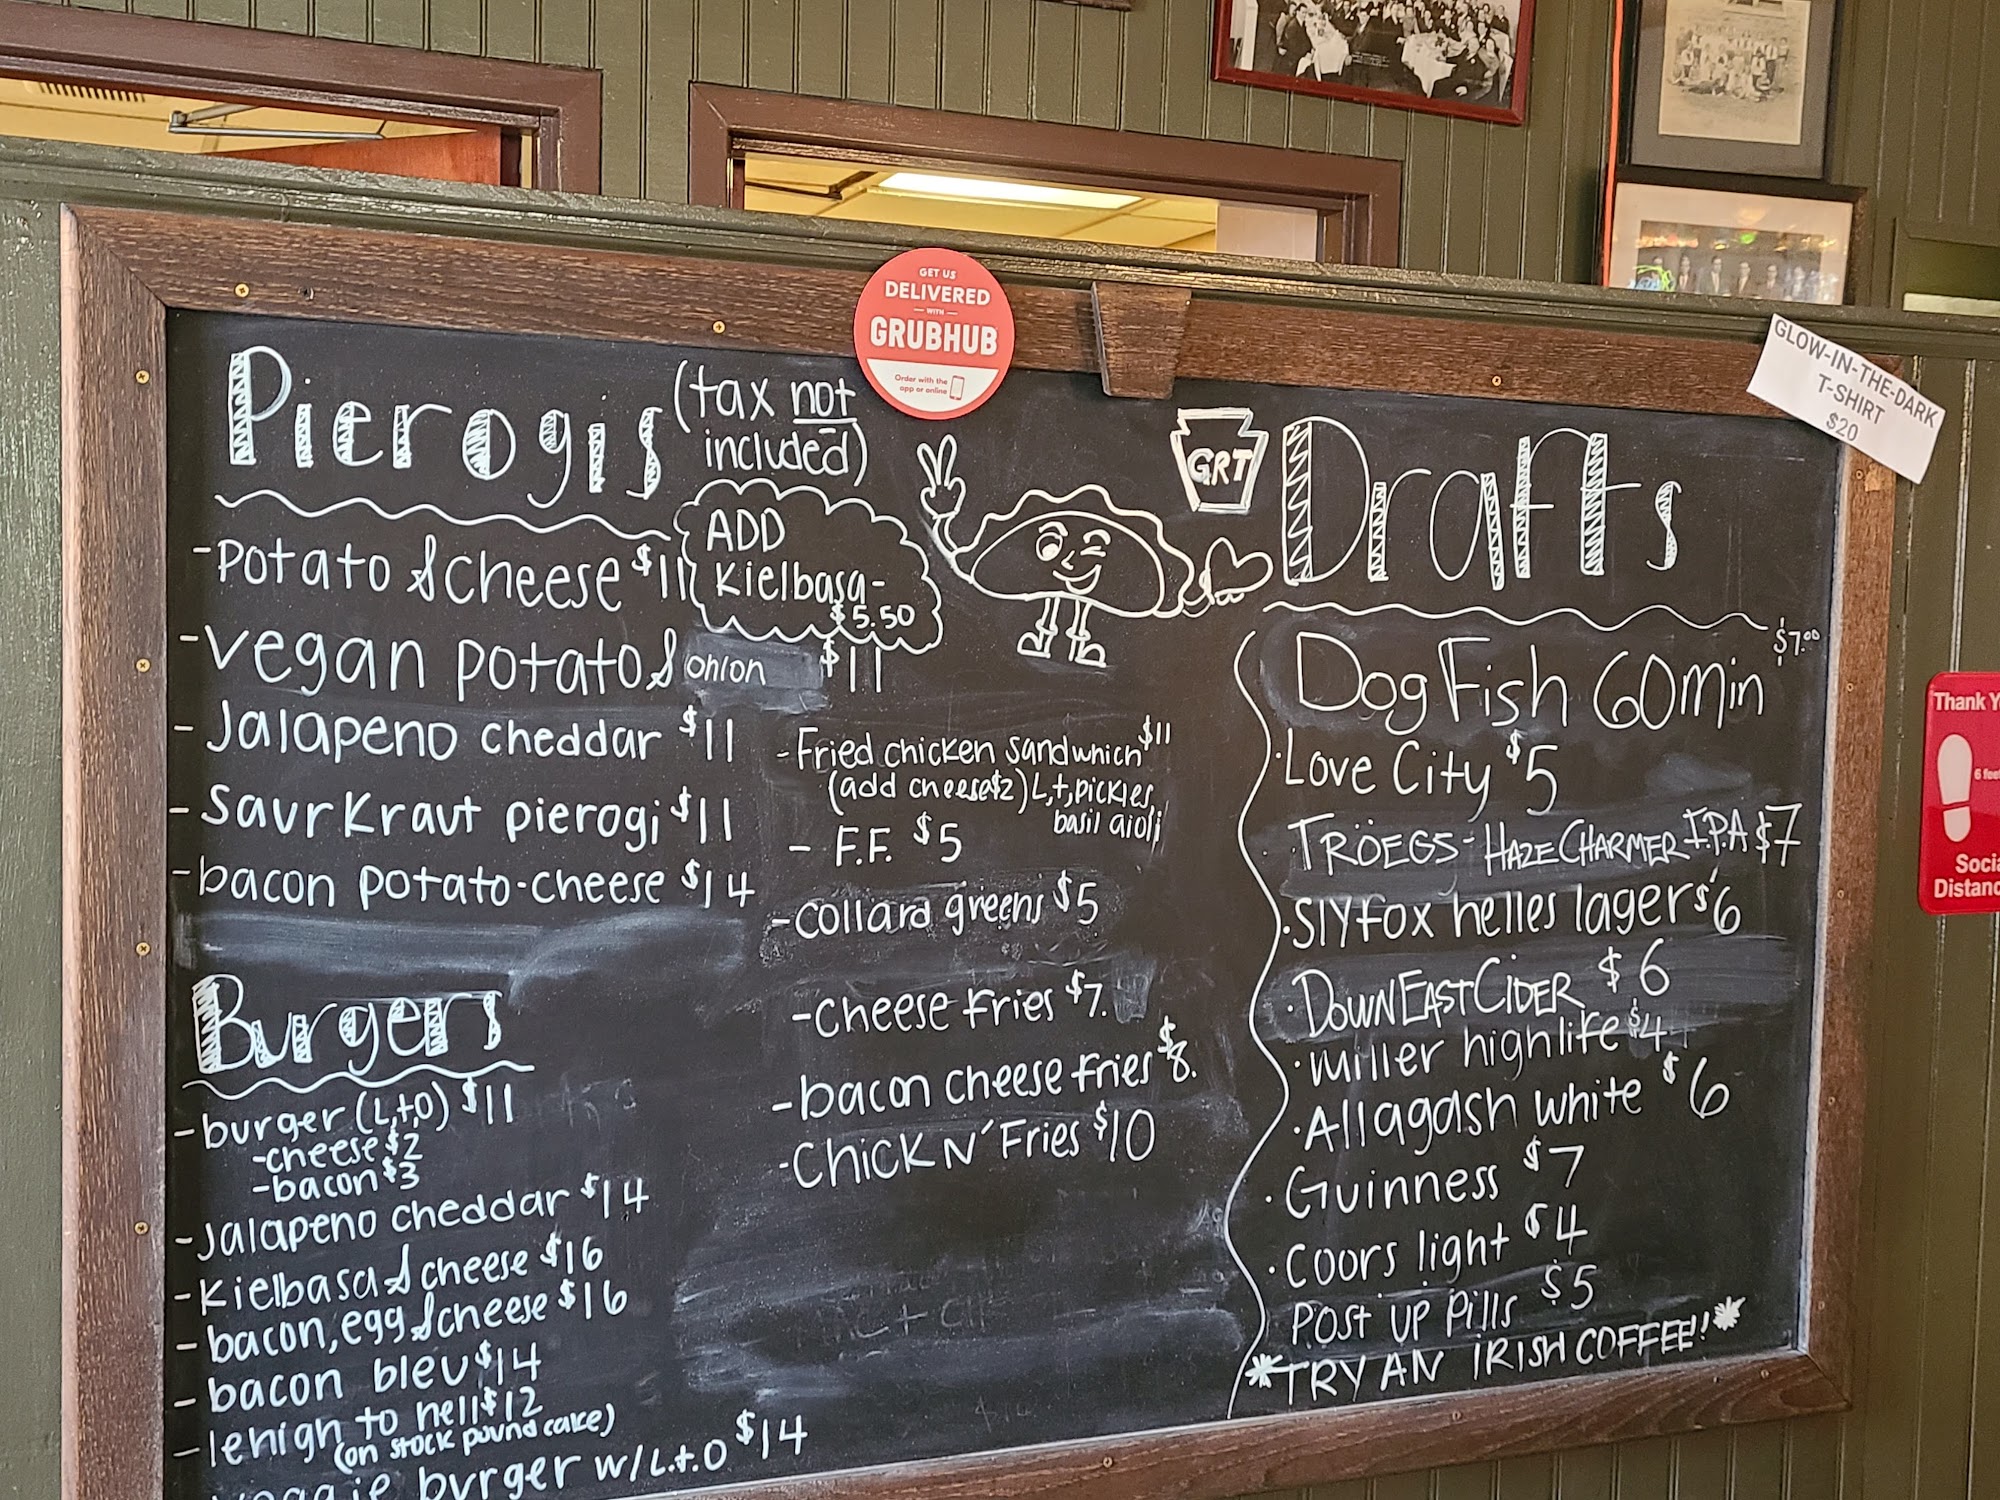 GET US
DELIVERED
WITH
GRUBHUB
Order with the
app or online
GLOW-IN-THE-DARK
T-SHIRT
$20
Pierogis
(tax not
included)
ADD
Kielbasa-
$5.50
-Potato & cheese $11
-vegan potato & onion $11
-Jalapeno cheddar $11
-SaurKraut pierogi $11
-bacon potato-cheese $14
Burgers
-burger (L,t,O) $11
-cheese $2
-bacon $3
-Jalapeno cheddar $14
-Kielbasa & cheese $16
-bacon, egg & cheese $16
-bacon bleu $14
-lehigh to hell $12
(on stock pound cake)
veggie burger w/L.t.O $14
-Fried chicken sandwhich $11
(add cheese $2) L,t,pickles,
basil aioli
- F.F. $5
-collard greens $5
-cheese fries $7.
-bacon cheese fries $8.
-Chick N' Fries $10
GRT
Drafts
DogFish 60min $7.00
·Love City $5
·TRÖEGS-HAZE CHARMER I.P.A $7
·Slyfox helles lager $6
·DOWNEAST CIDER $6
·miller highlife $4
·Allagash white $6
·Guinness $7
·Coors light $4
Post up pills $5
*TRY AN IRISH COFFEE!!*
Thank
6 feet
Distanc